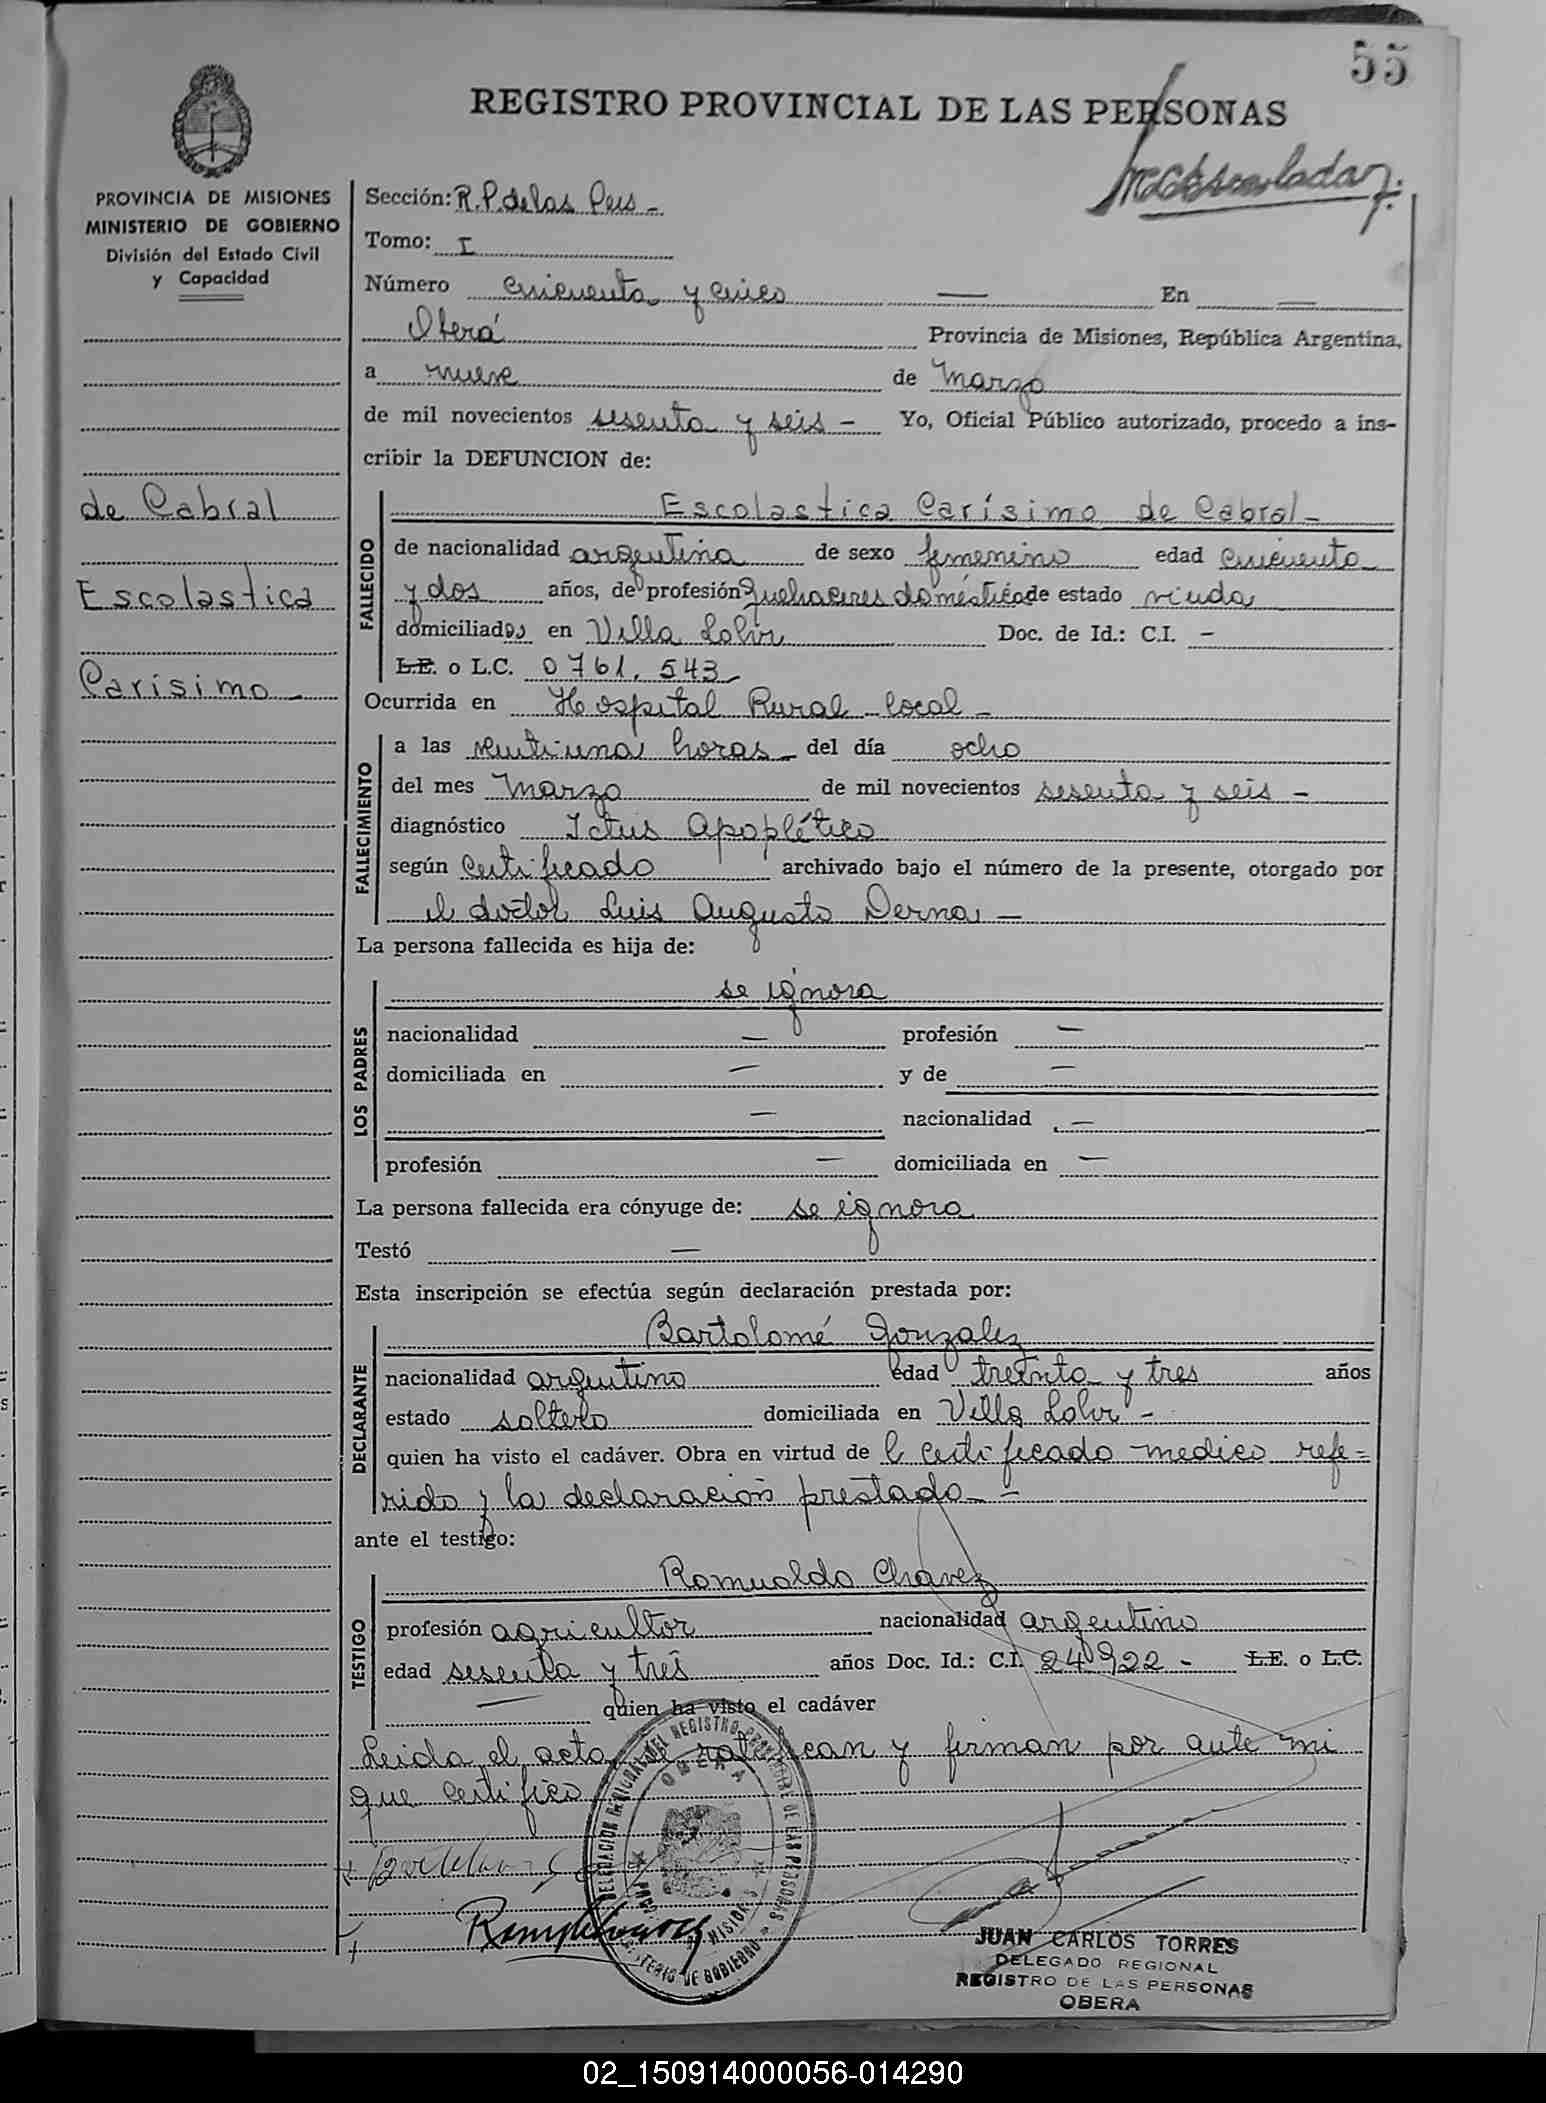 55
REGISTRO PROVINCIAL DE LAS PERSONAS
PROVINCIA DE MISIONES
MINISTERIO DE GOBIERNO
División del Estado Civil
y Capacidad
Sección: R.P. de las Pers -
Tomo: I
Número cincuenta y cinco — En —
Oberá Provincia de Misiones, República Argentina,
a nueve de Marzo
de mil novecientos sesenta y seis - Yo, Oficial Público autorizado, procedo a ins-
cribir la DEFUNCION de:
de Cabral
Escolastica
Carísimo -
FALLECIDO
Escolastica Carísimo de Cabral -
de nacionalidad argentina de sexo femenino edad cincuenta
y dos años, de profesión Quehaceres domésticos de estado viuda
domiciliada en Villa Doc. de Id.: C.I. -
L.E. o L.C. 0761.543
Ocurrida en Hospital Rural local -
FALLECIMIENTO
a las veintiuna horas - del día ocho
del mes Marzo de mil novecientos sesenta y seis -
diagnóstico Ictus Apoplético
según certificado archivado bajo el número de la presente, otorgado por
el doctor Luis Augusto Derna -
La persona fallecida es hija de:
LOS PADRES
se ignora
nacionalidad — profesión —
domiciliada en — y de —
— nacionalidad —
profesión — domiciliada en —
La persona fallecida era cónyuge de: se ignora
Testó —
Esta inscripción se efectúa según declaración prestada por:
DECLARANTE
Bartolomé Gonzalez
nacionalidad argentino edad treinta y tres años
estado soltero domiciliada en Villa -
quien ha visto el cadáver. Obra en virtud de l certificado medico refe=
rido y la declaración prestada -
ante el testigo:
TESTIGO
Romualdo Chavez
profesión agricultor nacionalidad argentino
edad sesenta y tres años Doc. Id.: C.I. 240922 - L.E. o L.C.
— quien ha visto el cadáver
Leida el acta, se ratifican y firman por ante mi
que certifico
DELEGACION REGIONAL DEL REGISTRO PROVINCIAL DE LAS PERSONAS
OBERA
MISIONES
MINISTERIO DE GOBIERNO
JUAN CARLOS TORRES
DELEGADO REGIONAL
REGISTRO DE LAS PERSONAS
OBERA
02_150914000056-014290